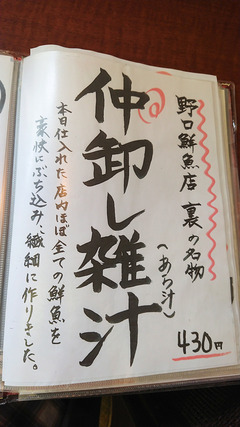 野口鮮魚店 裏の名物
仲卸し雑汁
(あら汁)
430円
本日仕入れた店内ほぼ全ての鮮魚を
豪快にぶち込み、繊細に作りました。